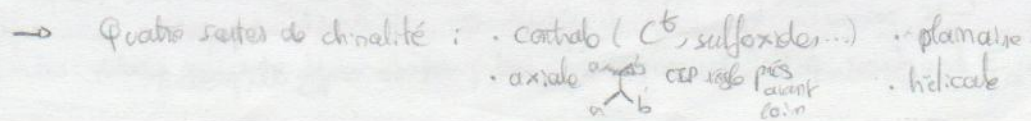 → Quatre sortes de chiralité : · centrale ( C*, sulfoxide, ...) · planaire
· axiale a b a b CIP règle près avant loin · hélicale